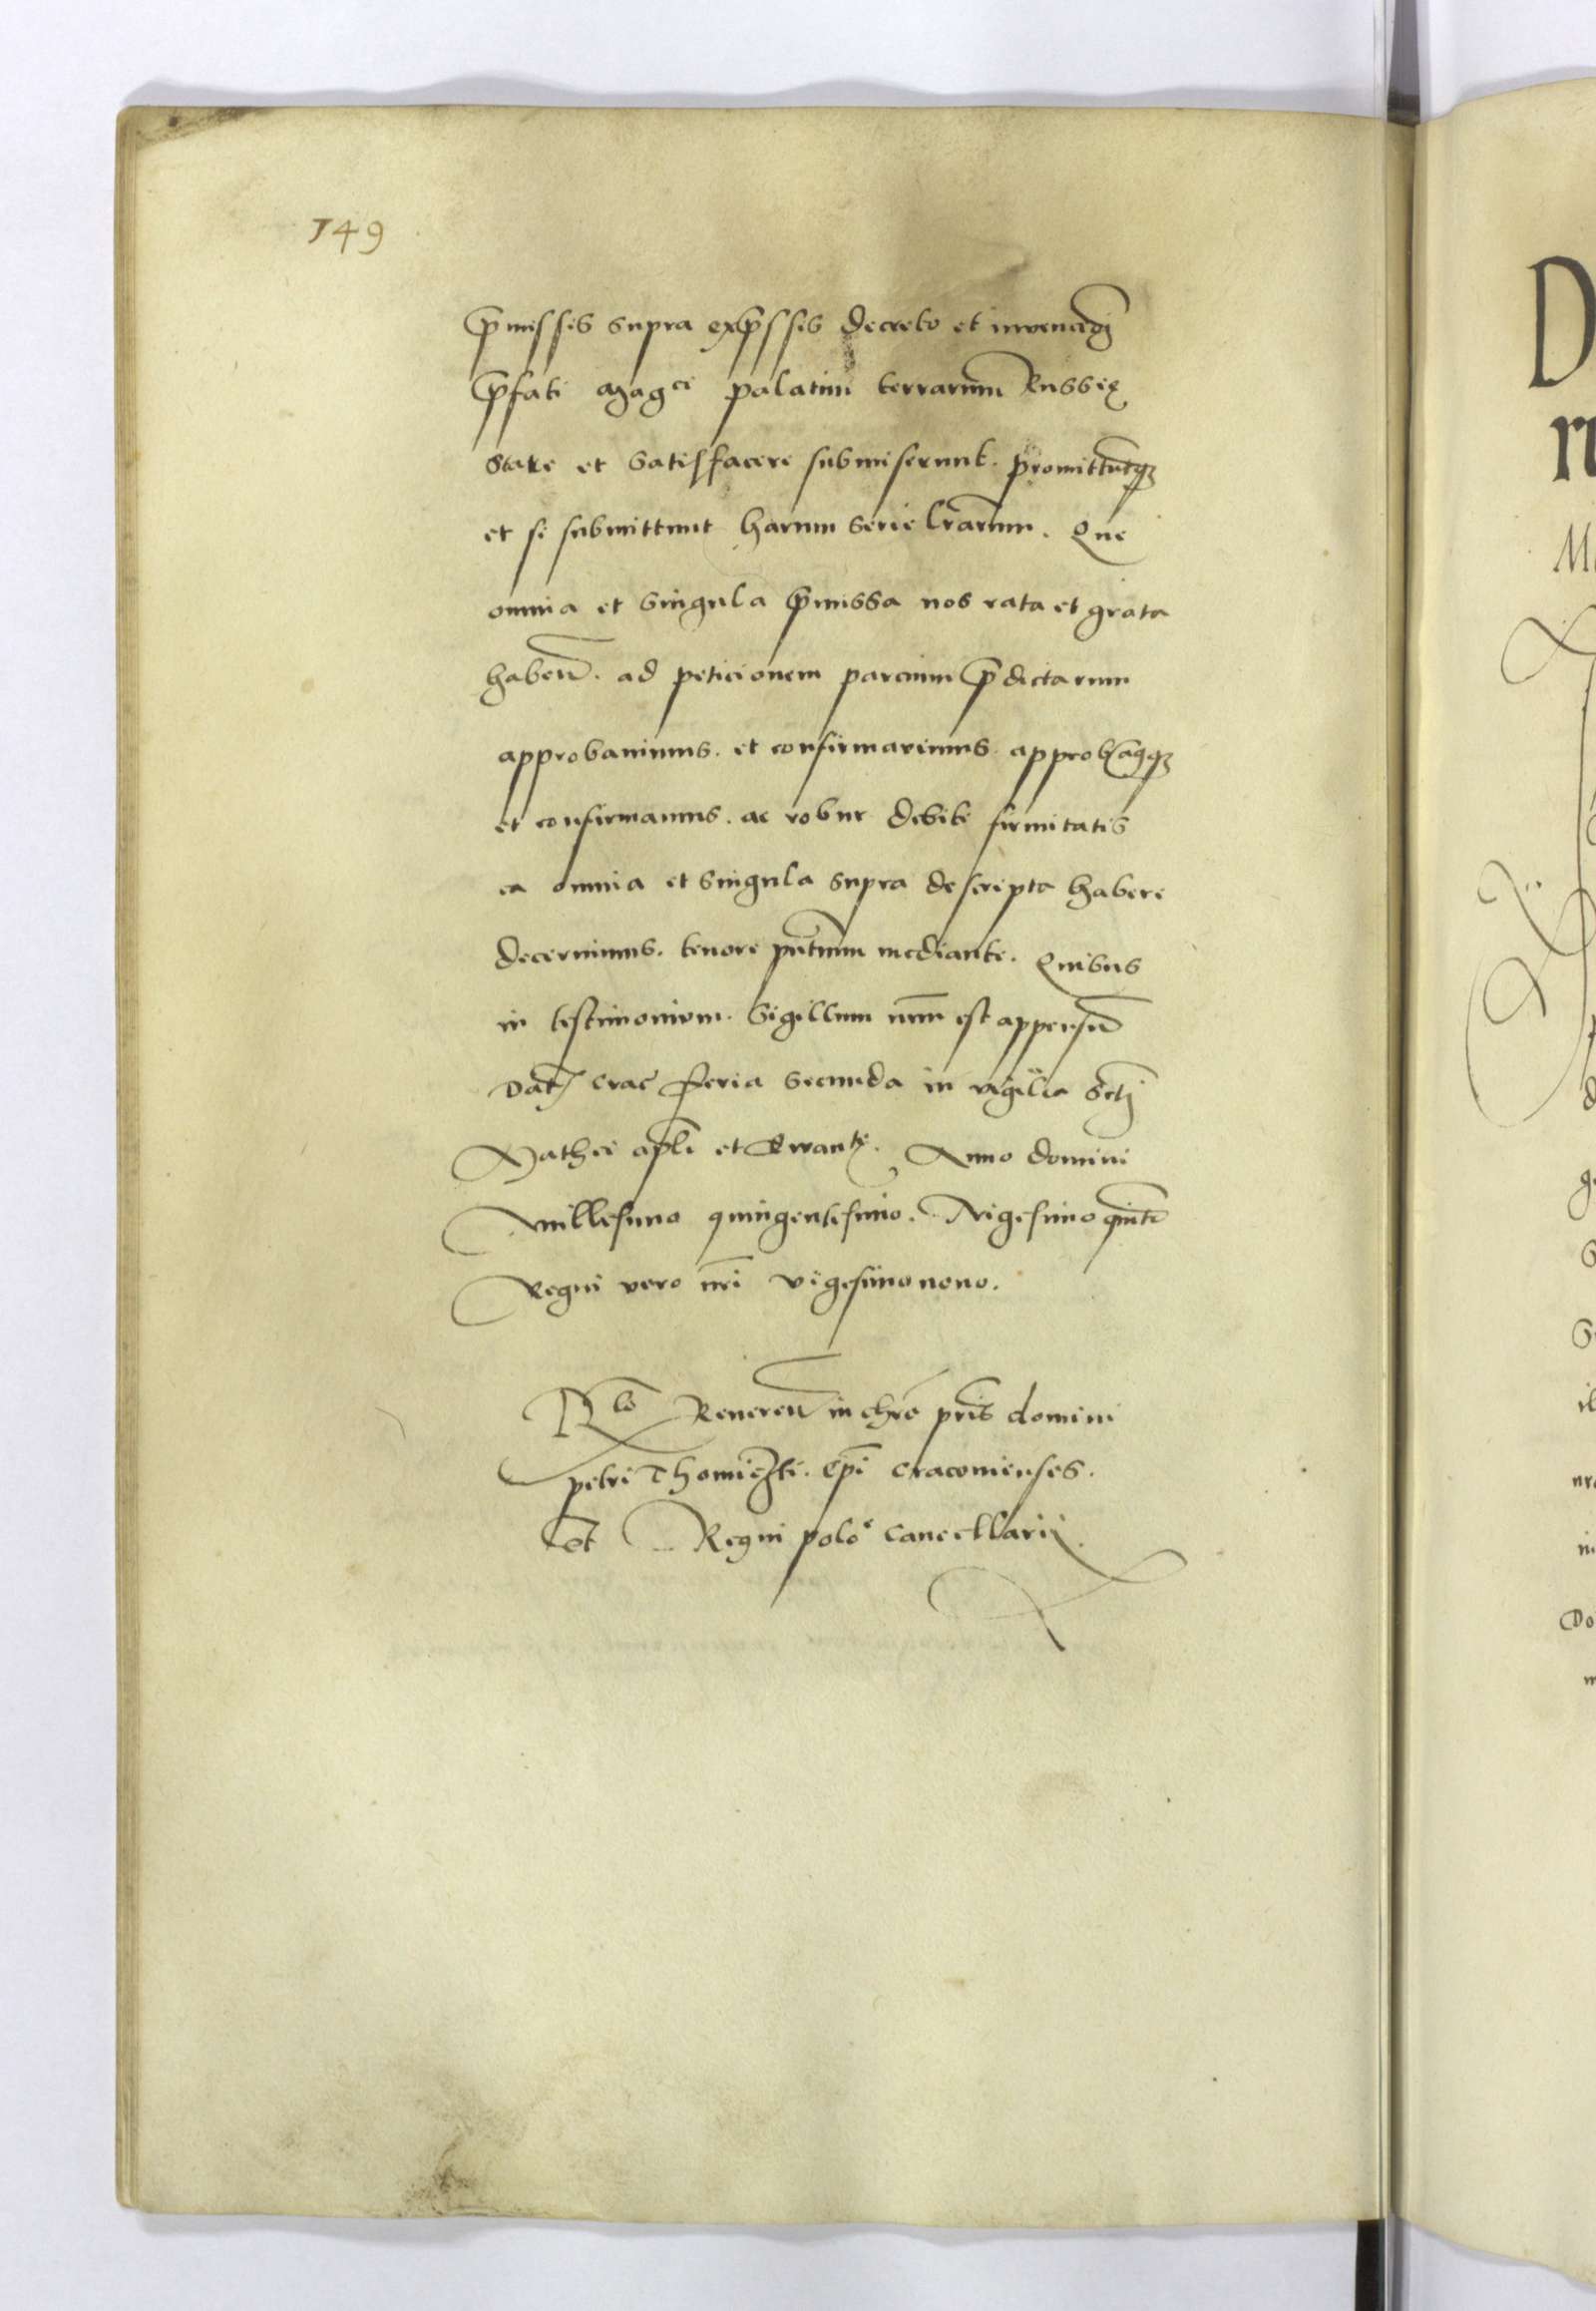 149
p̄missis supra exp̄ssis decreto et
p̄fati magci palatini terrarum Russię
stare et satisfacere submiserunt. promittūtq3
et se submittunt harum serie lr̄arum. Que
omnia et singula p̄missa nos rata et grata
haben̄. ad peticionem parcium p̄dictarum
approbavimus. et confirmavimus. approbam9q3
et confirmamus. ac robur debite firmitatis
ea omnia et singula supra descripta habere
decernimus. tenore pn̄tium mediante. Quibus
in testimonium. Sigillum nr̄m est appensū
Dat crac̄ feria secunda in vigilia sct̄i
Mathei apl̄i et Ewante. Anno domini
millesimo quingentesimo. Vigesimo quinto
Regni vero nr̄i vigesimonono.
Rlo Reveren̄ in chr̄o pr̄is domini
petri Thomiczki. ep̄i cracoviensis.
et Regni polo cancellarii
D